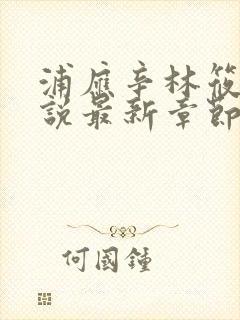 浦應辛林筱
說最新章節
何國鐘